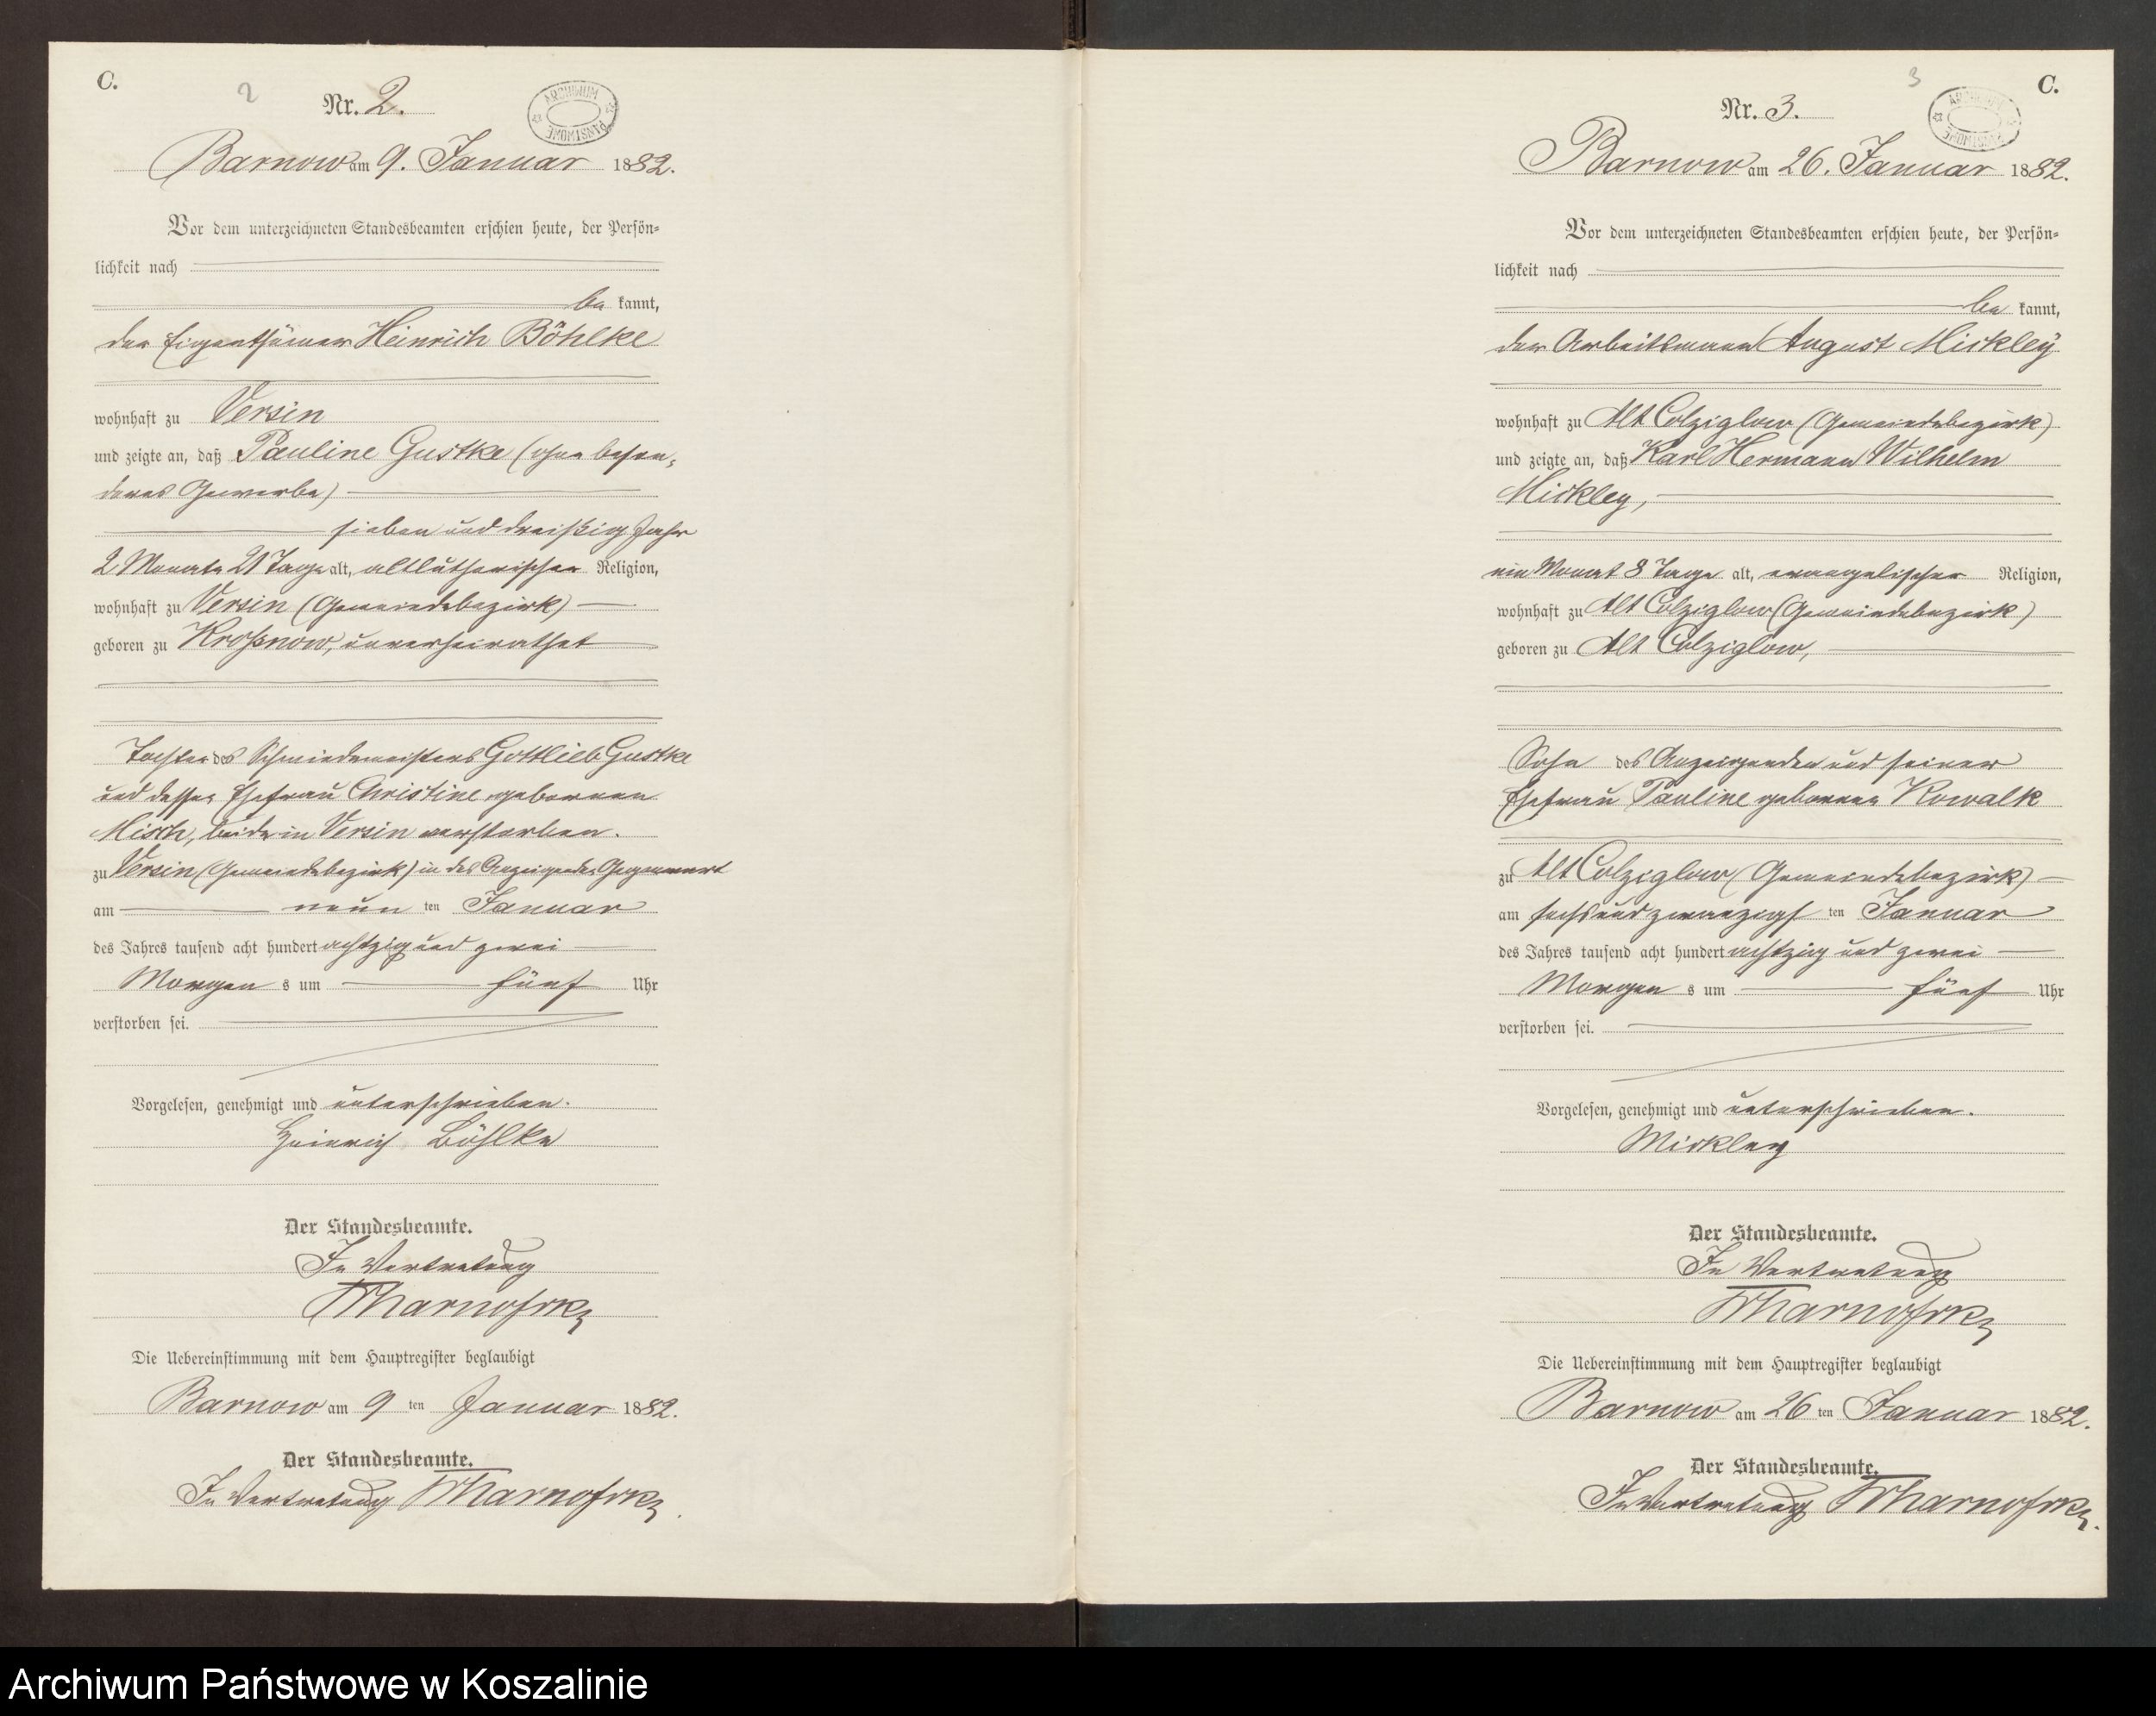 C.
2
Nr. 2.
ARCHIWUM PAŃSTWOWE
Barnow am 9. Januar 1882.
Vor dem unterzeichneten Standesbeamten erschien heute, der Persön-
lichkeit nach
be kannt,
der Eigenthümer Heinrich Böhlke
wohnhaft zu Versin
und zeigte an, daß Pauline Gustke (ohne beson-
deres Gewerbe)
sieben und dreißig Jahr
2 Monate 21 Tage alt, altlutherischer Religion,
wohnhaft zu Versin (Gemeindebezirk)
geboren zu Kroßnow, unverheirathet
Tochter des Schmiedemeisters Gottlieb Gustke
und dessen Ehefrau Christine geborenen
Misch, beide in Versin verstorben.
zu Versin (Gemeindebezirk) in des Anzeigenden Gegenwart
am neun ten Januar
des Jahres tausend acht hundert achtzig und zwei
Morgen s um fünf Uhr
verstorben sei.
Vorgelesen, genehmigt und unterschrieben.
Heinrich Böhlke
Der Standesbeamte.
In Vertretung
Die Uebereinstimmung mit dem Hauptregister beglaubigt
Barnow am 9 ten Januar 1882.
Der Standesbeamte.
In Vertretung
3
C.
Nr. 3.
ARCHIWUM PAŃSTWOWE
Barnow am 26. Januar 1882.
Vor dem unterzeichneten Standesbeamten erschien heute, der Persön-
lichkeit nach
be kannt,
der Arbeitsmann August Mickley
wohnhaft zu Alt Colziglow (Gemeindebezirk)
und zeigte an, daß Karl Hermann Wilhelm
Mickley,
ein Monat 8 Tage alt, evangelischer Religion,
wohnhaft zu Alt Colziglow (Gemeindebezirk)
geboren zu Alt Colziglow,
Sohn des Anzeigenden und seiner
Ehefrau Pauline geborenen Kowalk
zu Alt Colziglow (Gemeindebezirk)
am sechs und zwanzigs ten Januar
des Jahres tausend acht hundert achtzig und zwei
Morgen s um fünf Uhr
verstorben sei.
Vorgelesen, genehmigt und unterschrieben.
Mickley
Der Standesbeamte.
In Vertretung
Die Uebereinstimmung mit dem Hauptregister beglaubigt
Barnow am 26 ten Januar 1882.
Der Standesbeamte.
In Vertretung
Archiwum Państwowe w Koszalinie